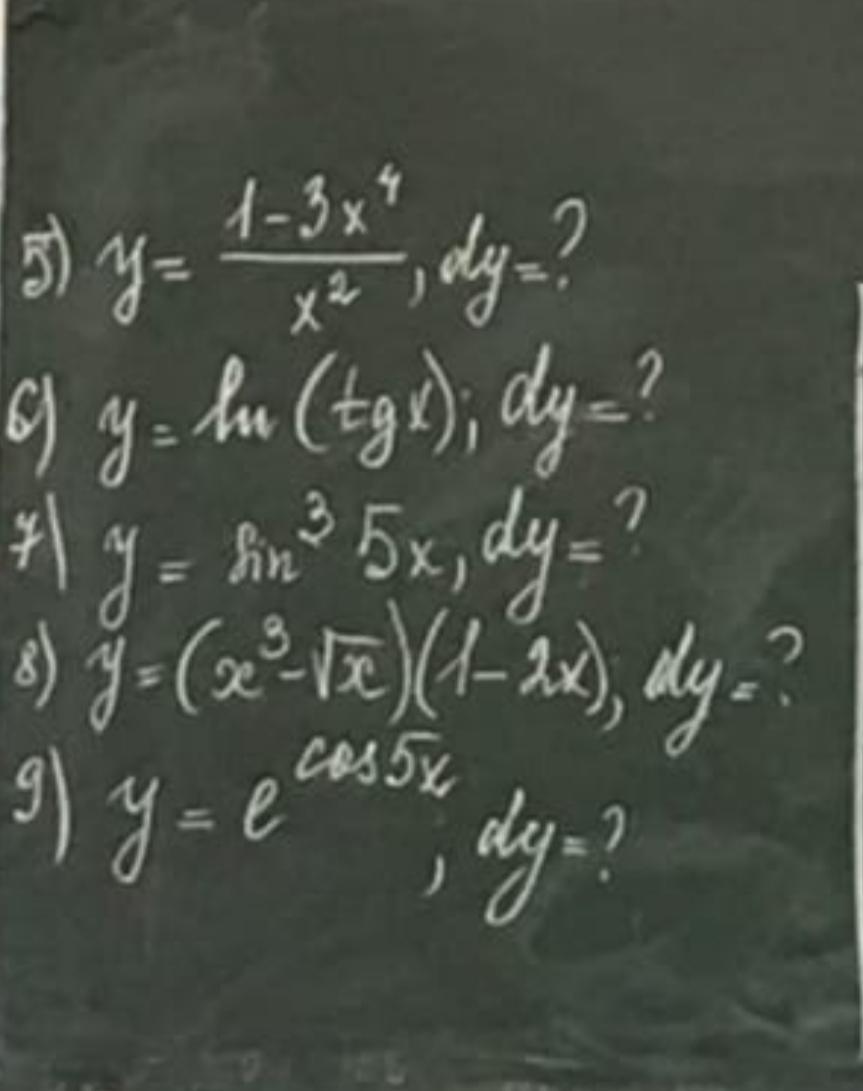 5) y = (1-3x⁴)/x², dy=?
6) y = ln (tgx); dy=?
7) y = sin³ 5x, dy=?
8) y=(x³-√x)(1-2x), dy=?
9) y = e^cos5x, dy=?